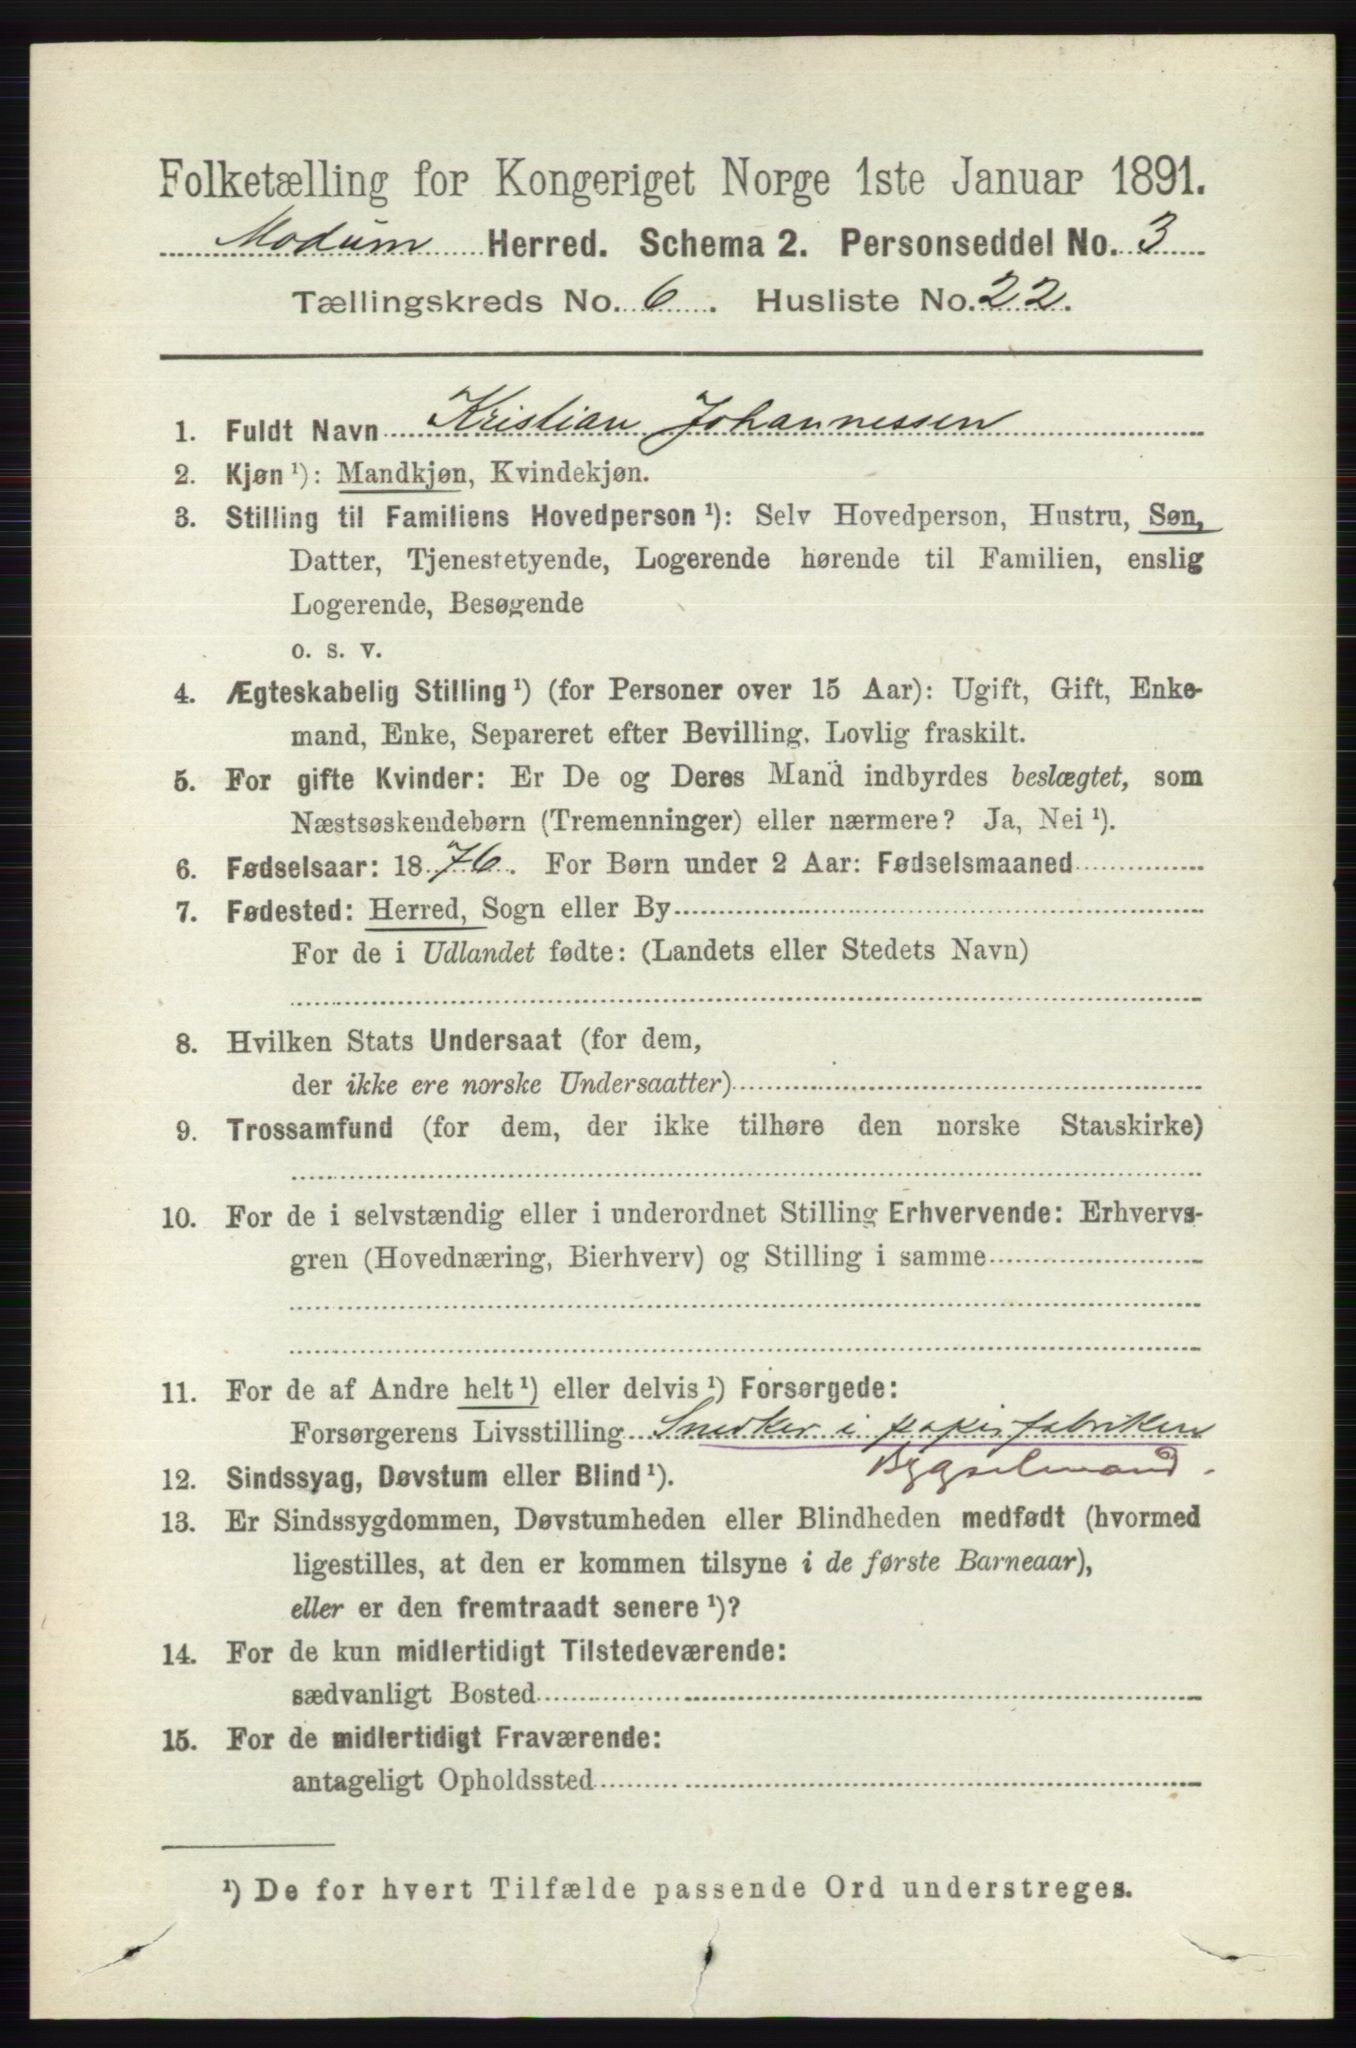 Folketælling for Kongeriget Norge 1ste Januar 1891.
Modum Herred. Schema 2. Personseddel No. 3
Tællingskreds No. 6. Husliste No. 22.
1. Fuldt Navn Kristian Johannessen
2. Kjøn ¹): Mandkjøn, Kvindekjøn.
3. Stilling til Familiens Hovedperson ¹): Selv Hovedperson, Hustru, Søn,
Datter, Tjenestetyende, Logerende hørende til Familien, enslig
Logerende, Besøgende
o. s. v.
4. Ægteskabelig Stilling ¹) (for Personer over 15 Aar): Ugift, Gift, Enke-
mand, Enke, Separeret efter Bevilling. Lovlig fraskilt.
5. For gifte Kvinder: Er De og Deres Mand indbyrdes beslægtet, som
Næstsøskendebørn (Tremenninger) eller nærmere? Ja, Nei ¹).
6. Fødselsaar: 1876. For Børn under 2 Aar: Fødselsmaaned
7. Fødested: Herred, Sogn eller By
For de i Udlandet fødte: (Landets eller Stedets Navn)
8. Hvilken Stats Undersaat (for dem,
der ikke ere norske Undersaatter)
9. Trossamfund (for dem, der ikke tilhøre den norske Statskirke)
10. For de i selvstændig eller i underordnet Stilling Erhvervende: Erhvervs-
gren (Hovednæring, Bierhverv) og Stilling i samme
11. For de af Andre helt ¹) eller delvis ¹) Forsørgede:
Forsørgerens Livsstilling Snedker i papirfabriken
Bygselmand.
12. Sindssyag, Døvstum eller Blind ¹).
13. Er Sindssygdommen, Døvstumheden eller Blindheden medfødt (hvormed
ligestilles, at den er kommen tilsyne i de første Barneaar),
eller er den fremtraadt senere ¹)?
14. For de kun midlertidigt Tilstedeværende:
sædvanligt Bosted
15. For de midlertidigt Fraværende:
antageligt Opholdssted
¹) De for hvert Tilfælde passende Ord understreges.